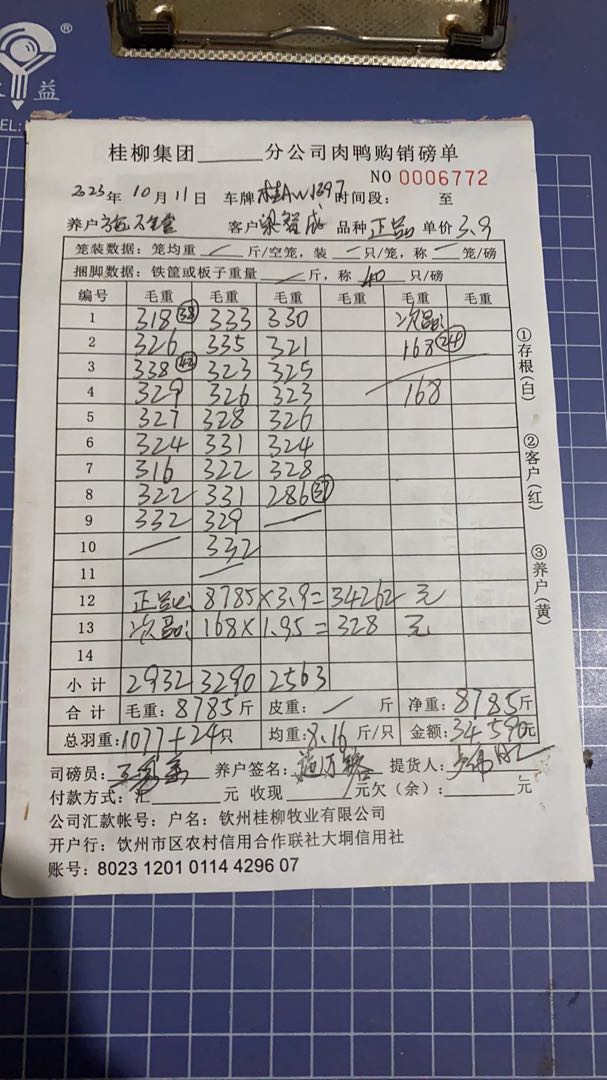 ®
益
TEL:
桂柳集团______分公司肉鸭购销磅单
NO 0006772
2023年 10月 11日 车牌 桂AW1397 时间段: 至
养户 客户 梁智成 品种 正品 单价 3.9
笼装数据: 笼均重 / 斤/空笼, 装 / 只/笼, 称 / 笼/磅
捆脚数据: 铁筐或板子重量 / 斤, 称 40 只/磅
编号 毛重 毛重 毛重 毛重 毛重 毛重
1 318 (38) 333 330 次品:
2 326 335 321 168 (24)
3 338 (42) 323 325
4 329 326 323 168
5 327 328 326
6 324 331 324
7 316 322 328
8 322 331 286 (37)
9 332 329 —
10 — 332
11 —
12 正品: 8785×3.9=34262 元
13 次品: 168×1.95=328 元
14
小计 2932 3290 2563
合计 毛重: 8785斤 皮重: / 斤 净重: 8785斤
总羽重: 1077+24只 均重: 8.16斤/只 金额: 34590元
司磅员: 养户签名: 提货人:
付款方式: 汇______元 收现______元欠(余): ______元
公司汇款帐号: 户名: 钦州桂柳牧业有限公司
开户行: 钦州市区农村信用合作联社大垌信用社
账号: 8023 1201 0114 4296 07
①存根(白)
②客户(红)
③养户(黄)